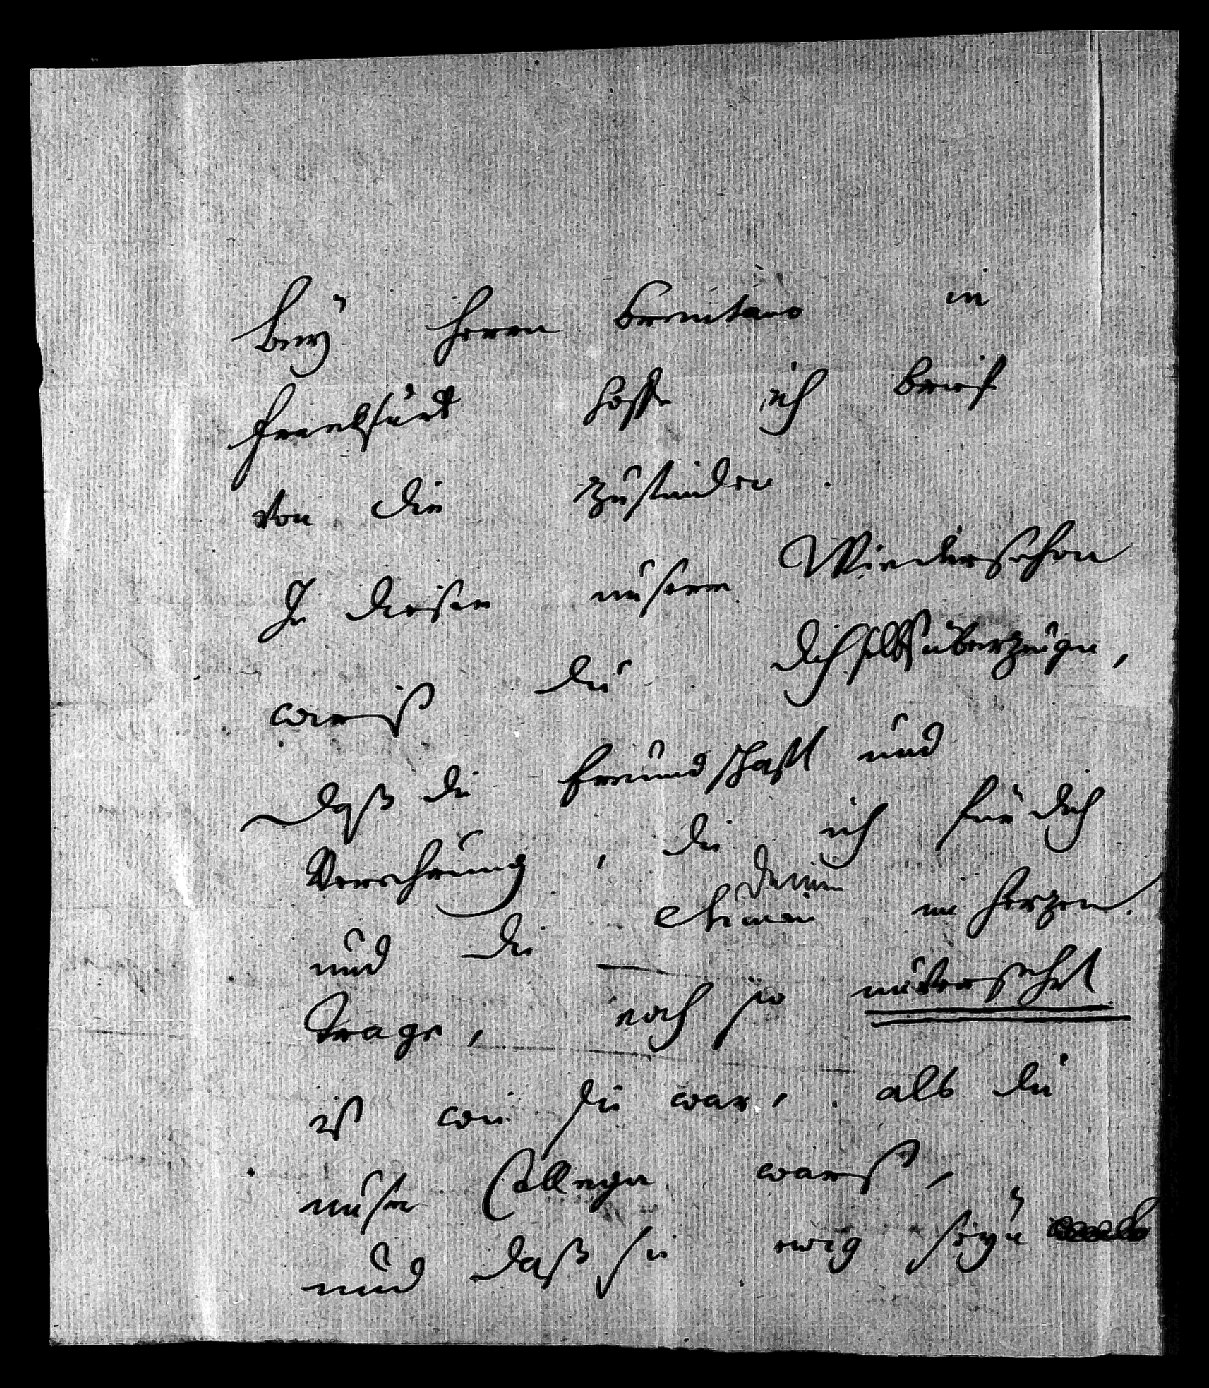 bey Herrn Brentano in
Frankfurt hoffe ich brief
von dir zu finden.
In diesen unserm Wiedersehen
wirst du dich selbst überzeugen,
daß die Freundschaft und
Verehrung, die ich für dich
deinen
und die im Herzen
trage, noch so unversehrt
ist wie sie war, als du
unser College warst,
und daß sie ewig seyn